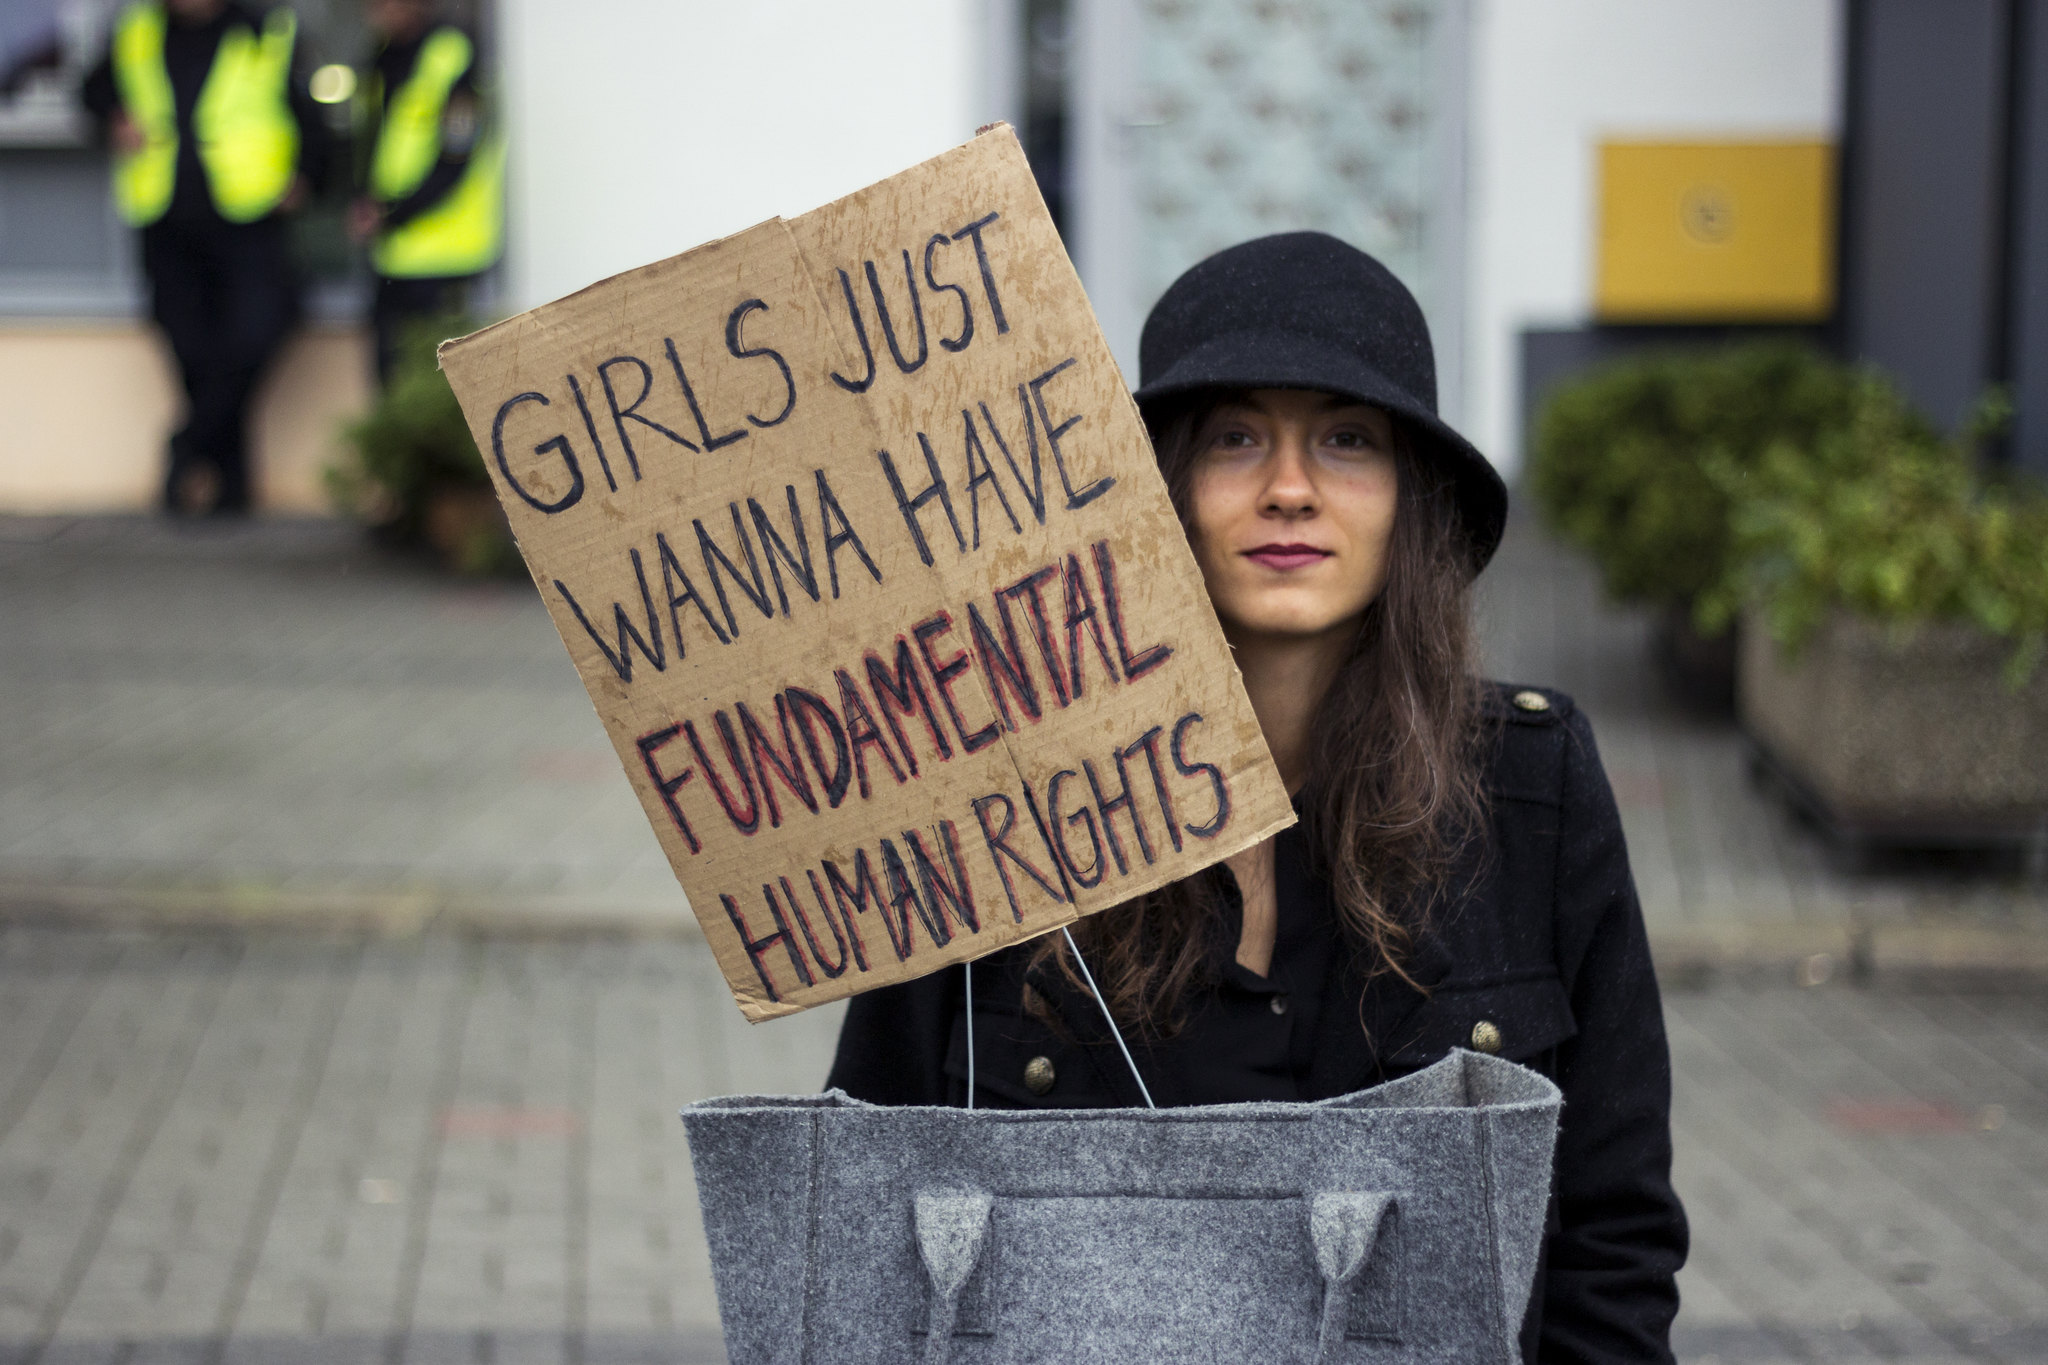 GIRLS JUST
WANNA HAVE
FUNDAMENTAL
HUMAN RIGHTS